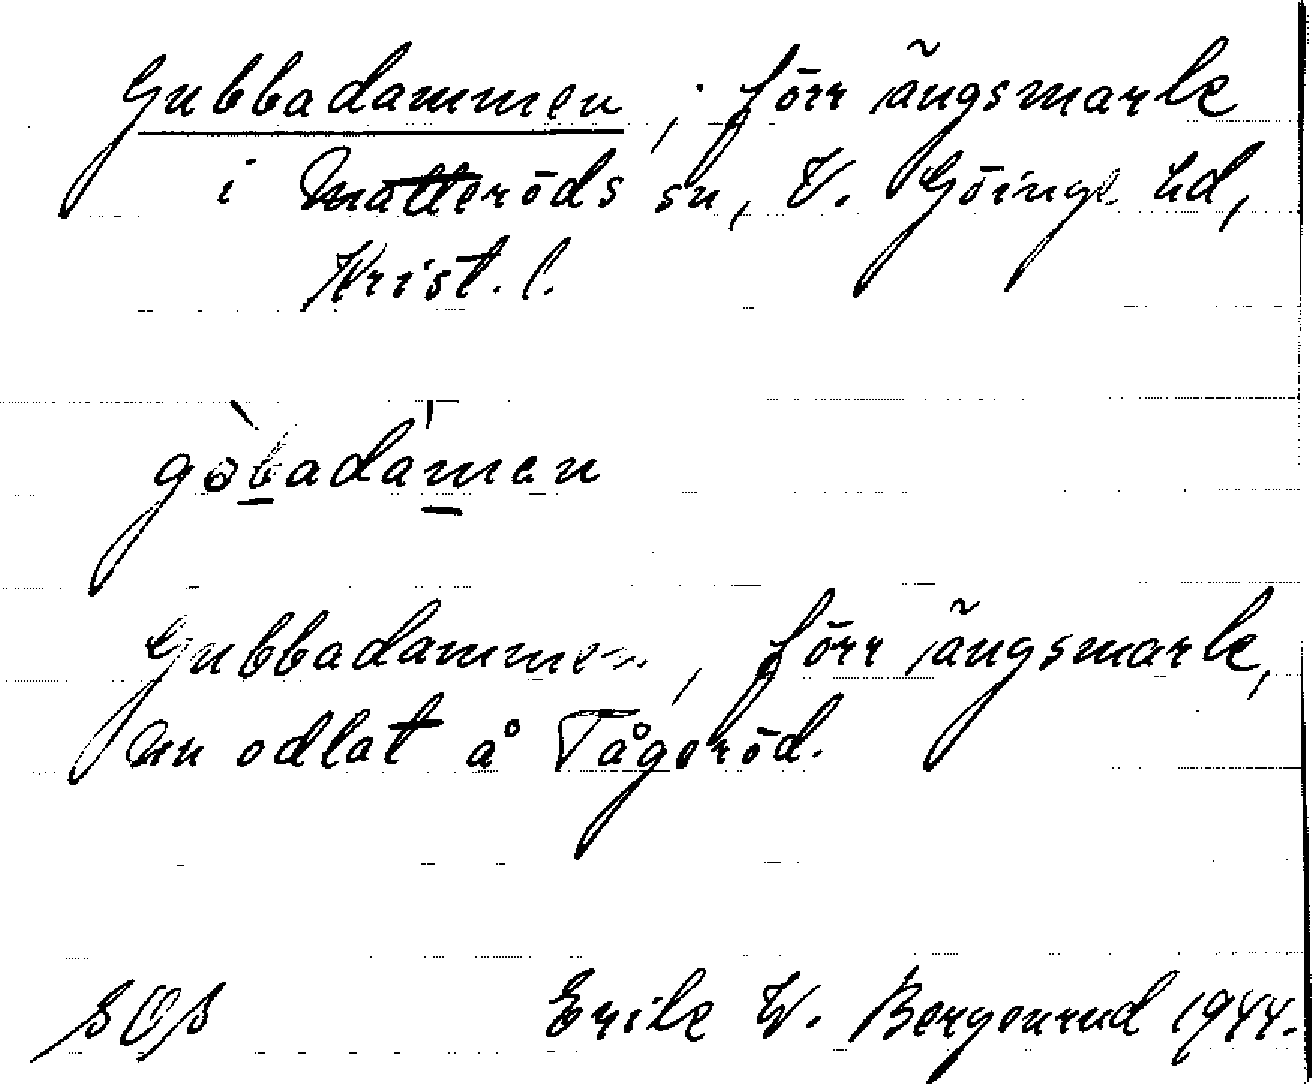 Gubbadammen, förr ängsmark
i Matteröds sn, V. Göinge hd,
Krist. l.
gòbadámen
Gubbadammen, förr ängsmark,
nu odlat å Tågeröd.
SOS Erik W. Bergenrud 1944.